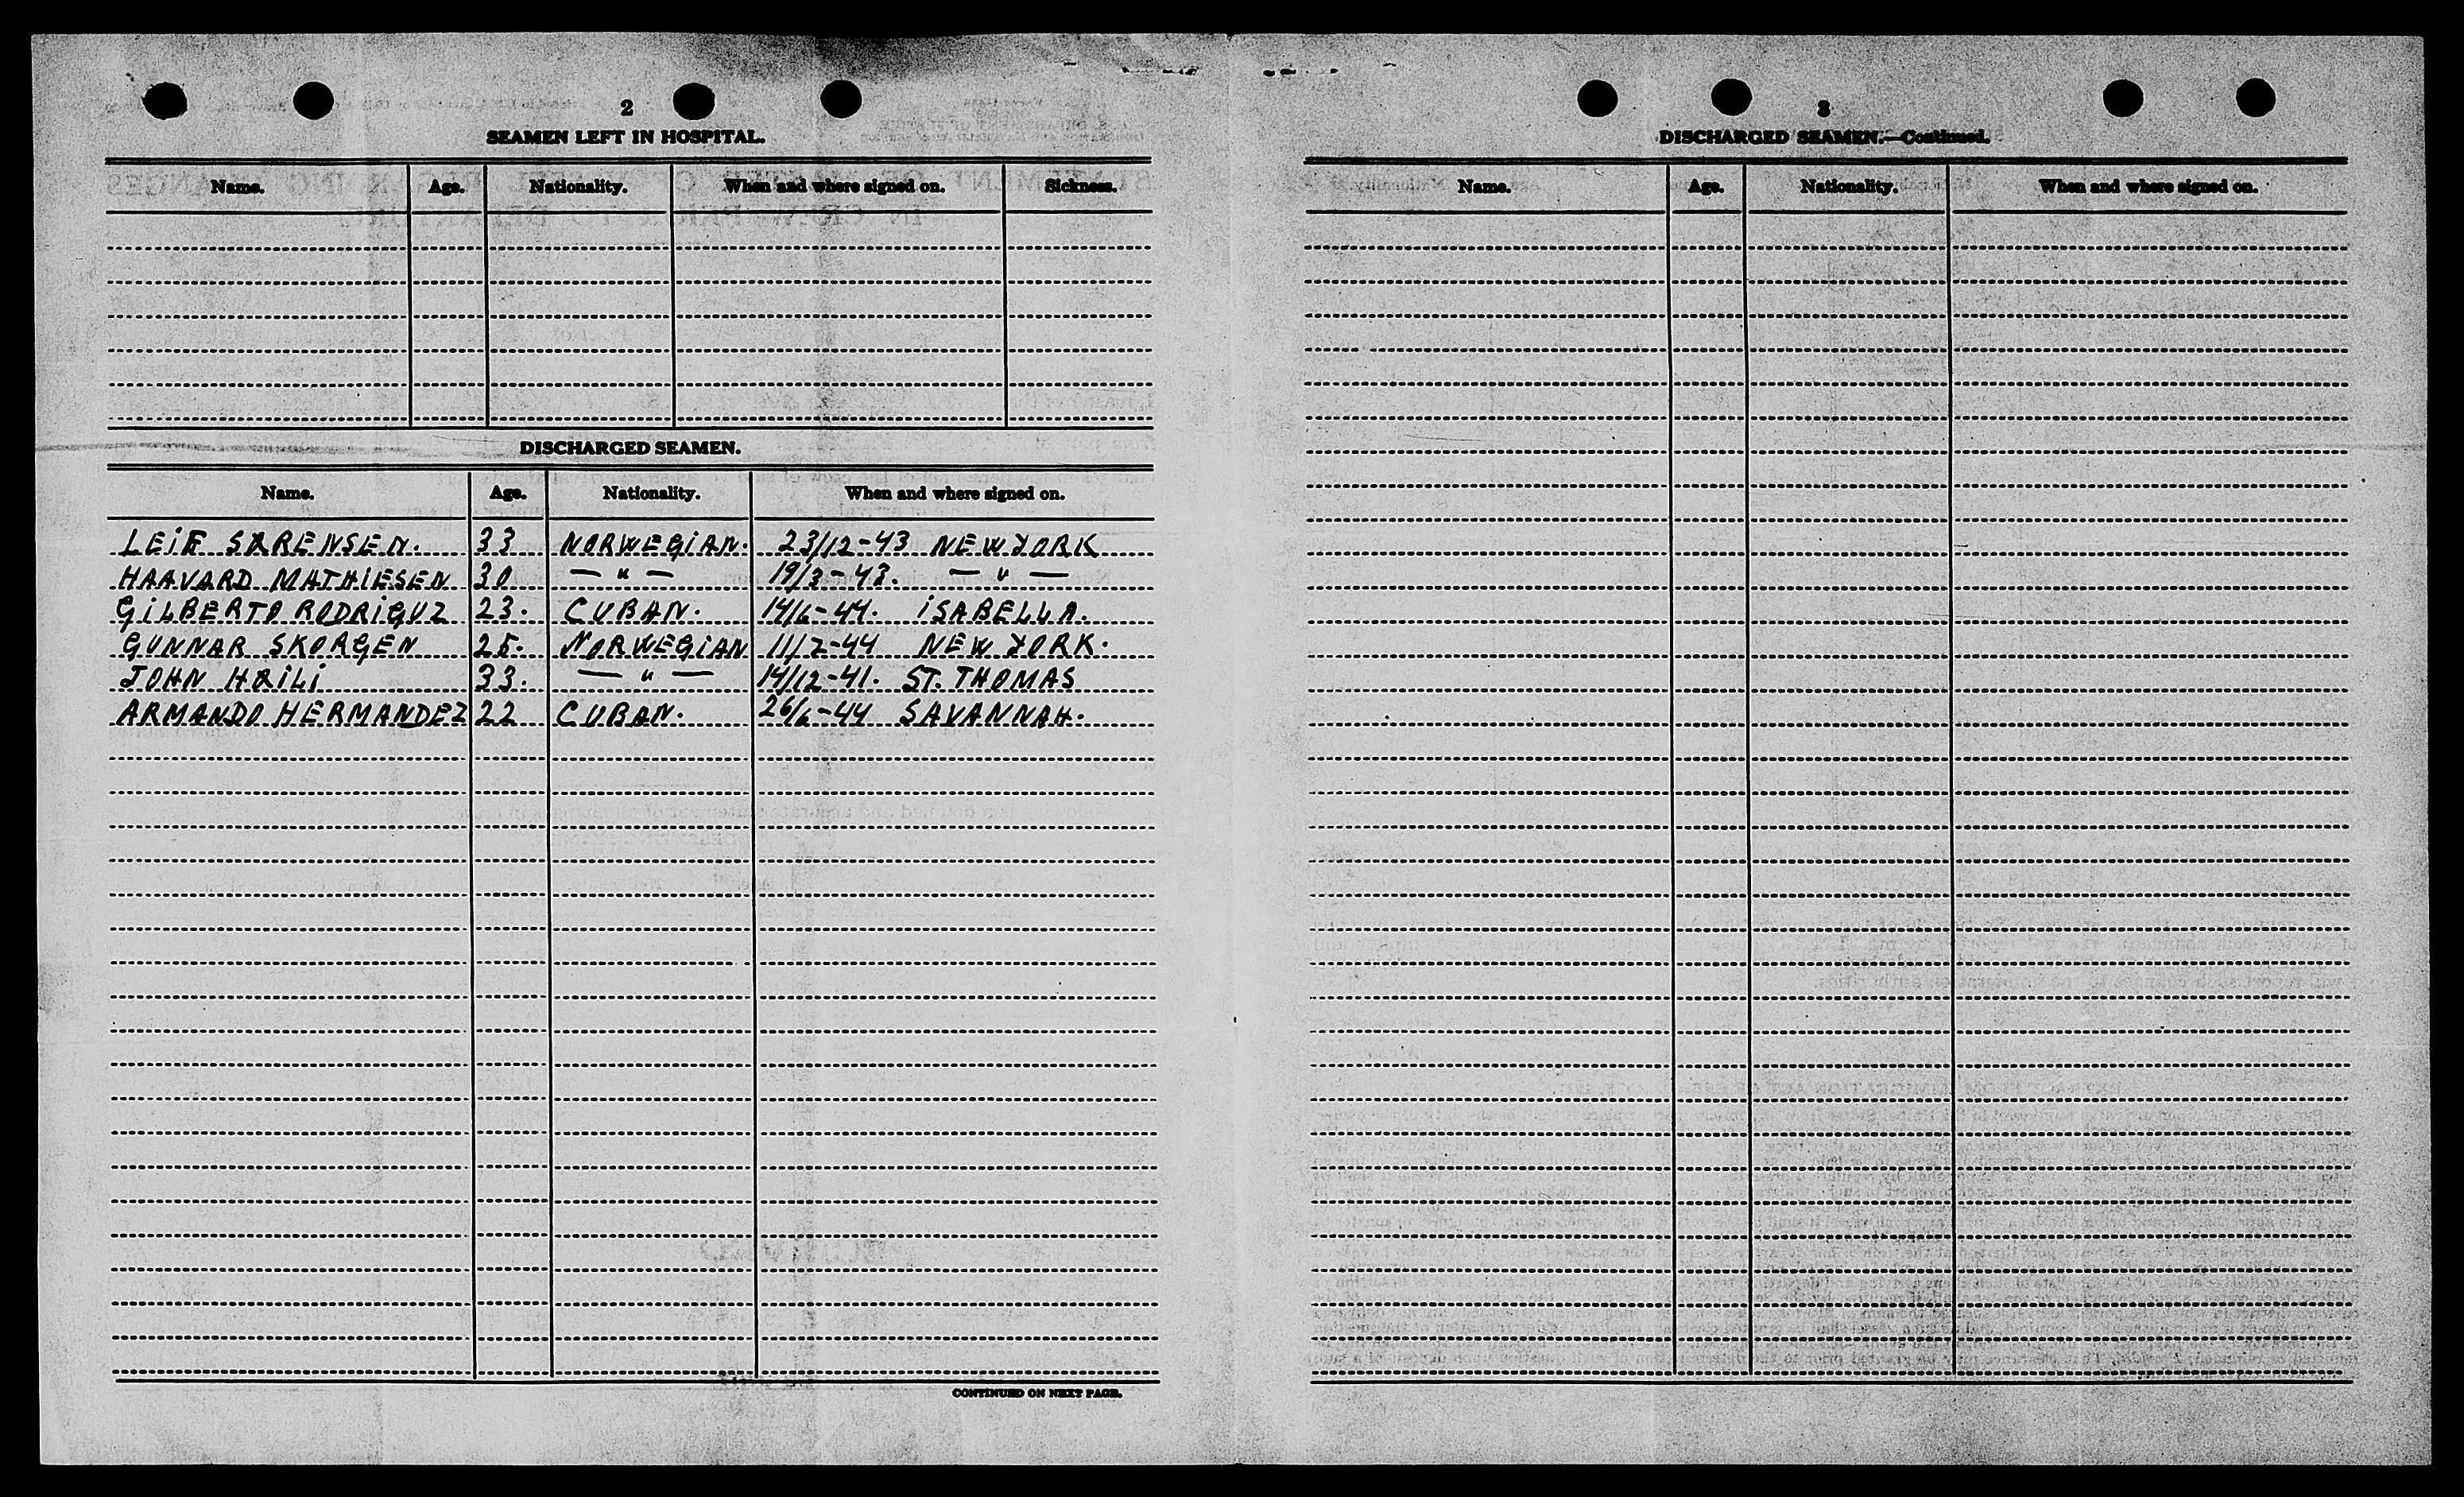 2
SEAMEN LEFT IN HOSPITAL.
Name. Age. Nationality. When and where signed on. Sickness.
DISCHARGED SEAMEN.
Name. Age. Nationality. When and where signed on.
LEiF SØRENSEN. 33 NORWEGiAN. 23/12-43 NEW YORK
HAAVARD MATHiESEN 30 — " — 19/3-43. — " —
GiLBERTO RODRiGUZ 23. CUBAN. 14/6-44. iSABELLA.
GUNNAR SKORGEN 25. NORWEGiAN 11/2-44 NEW YORK.
JOHN HØiLi 33. — " — 14/12-41. ST. THOMAS
ARMANDO HERMANDEZ 22 CUBAN. 26/6-44 SAVANNAH.
CONTINUED ON NEXT PAGE.
3
DISCHARGED SEAMEN.—Continued.
Name. Age. Nationality. When and where signed on.